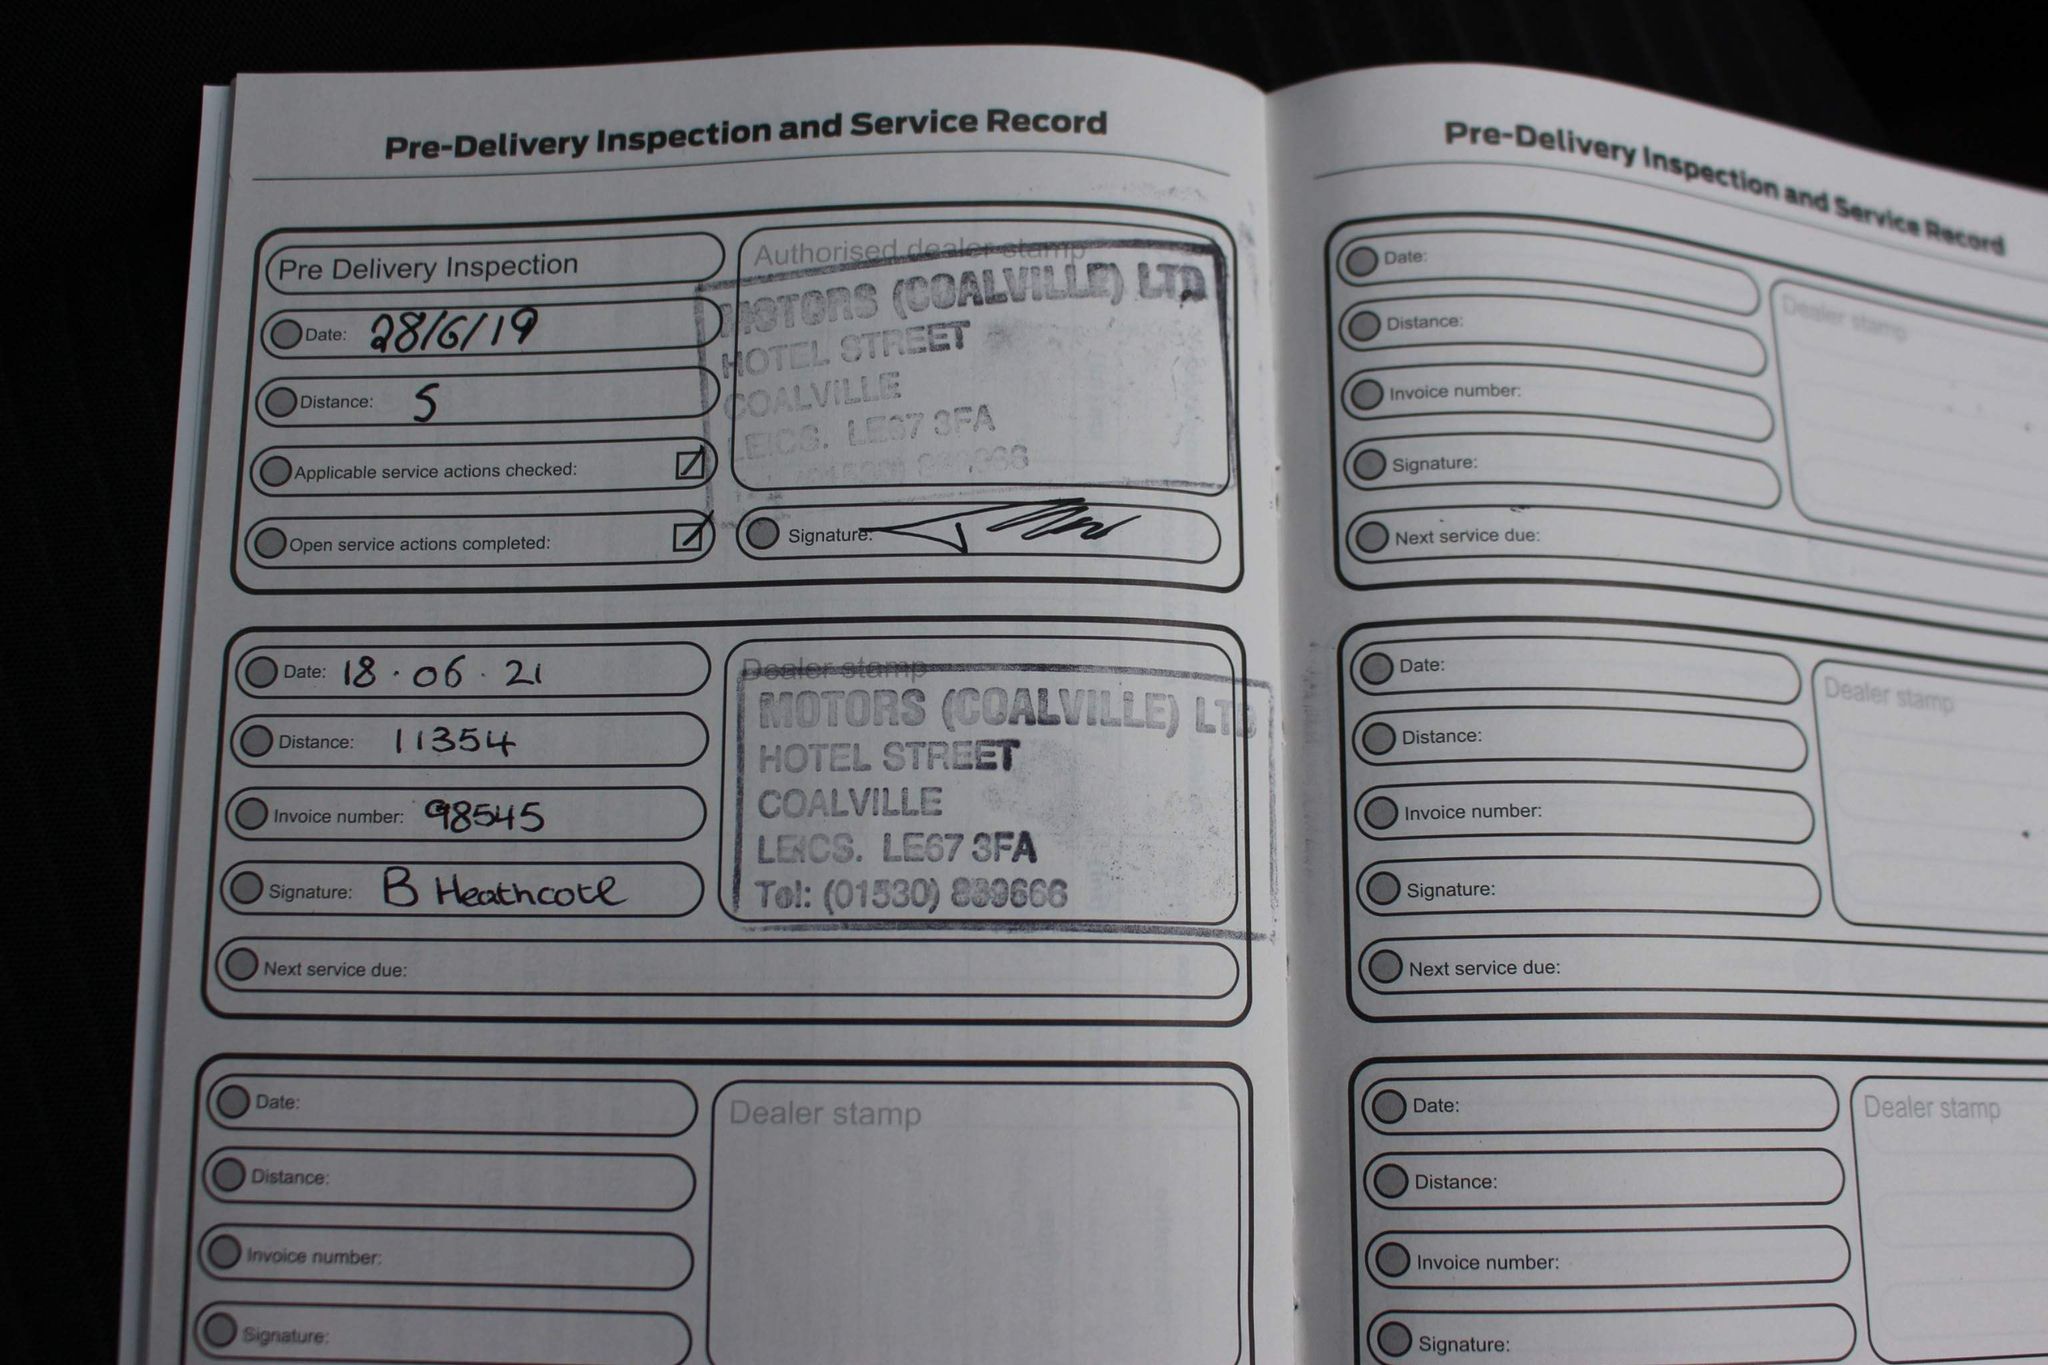 Pre-Delivery Inspection and Service Record
Pre Delivery Inspection
Date: 28/6/19
Distance: 5
Applicable service actions checked:
Open service actions completed:
Authorised dealer stamp
MOTORS (COALVILLE) LTD
HOTEL STREET
COALVILLE
LEICS. LE67 3FA
Signature:
Date: 18.06.21
Distance: 11354
Invoice number: 98545
Signature: B Heathcote
Next service due:
Dealer stamp
MOTORS (COALVILLE) LTD
HOTEL STREET
COALVILLE
LEICS. LE67 3FA
Tel: (01530) 839666
Date:
Distance:
Invoice number:
Signature:
Dealer stamp
Pre-Delivery Inspection and Service Record
Date:
Distance:
Invoice number:
Signature:
Next service due:
Dealer stamp
Date:
Distance:
Invoice number:
Signature:
Next service due:
Dealer stamp
Date:
Distance:
Invoice number:
Signature:
Dealer stamp